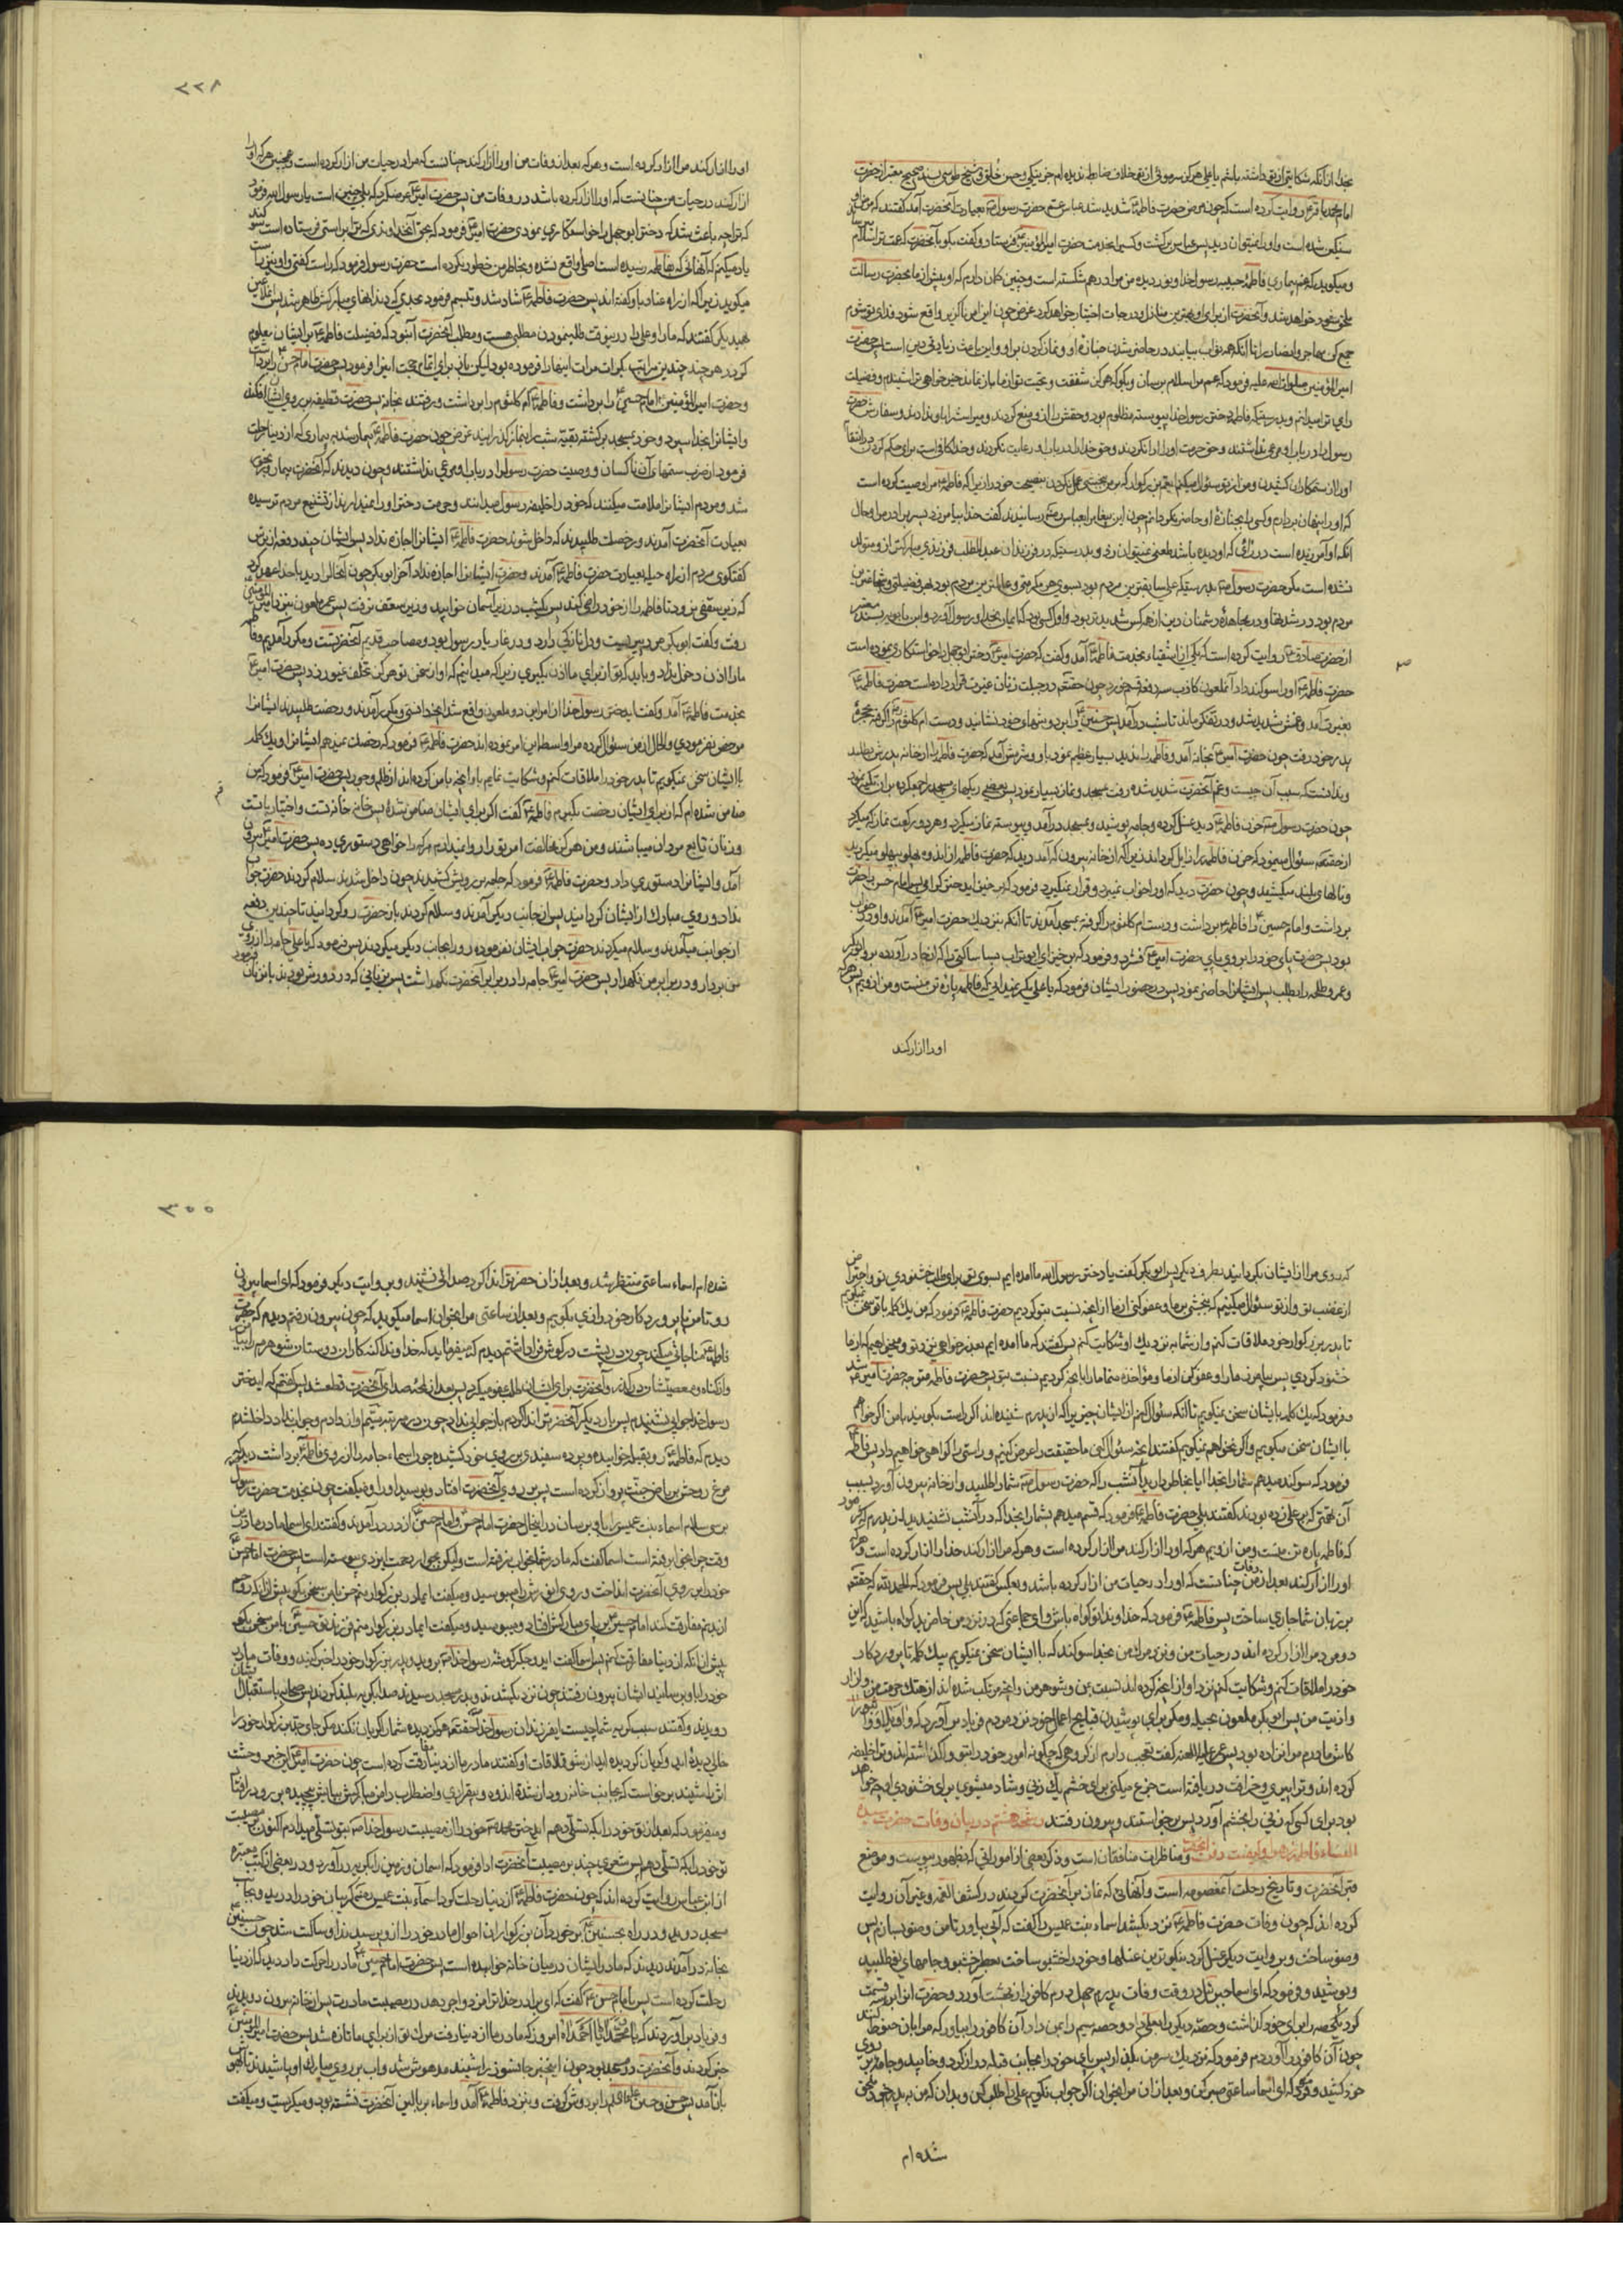 بخدا از آنکه شکایتی از تو داشته باشم یا علی هرگز سر موئی از تو خلاف رضا ندیده ام جز نیکی و حسن خلق و شیخ طوسی بسند صحیح معتبر از حضرت
امام محمد باقر روایت کرده است که چون مرض حضرت فاطمه شدید شد عباس عم حضرت رسول بعیادت آنحضرت آمد گفتند که مرض او
سنگین شده است و او را نمیتوان دید پس عباس برگشت و کسی بخدمت حضرت امیرالمؤمنین فرستاد و گفت بگو با آنحضرت که عمت ترا سلام
و میگوید که غم بیماری فاطمه حبیبه رسول خدا و نور دیده من مرا درهم شکسته است و چنین گمان دارم که او پیش از ما بحضرت رسالت
ملحق خواهد شد و آنحضرت از برای او بهترین منازل و درجات اختیار خواهد کرد عرض چون این امر ناگزیر واقع شود فدای تو شوم
جمع کن مهاجر و انصار را تا آنکه همه ثواب بیابند در حاضر شدن جنازه او و نماز کردن بر او و این باعث زیادتی دین است پس حضرت
امیرالمؤمنین صلوات الله علیه فرمود که عمم مرا سلام برسان و بگو که هرگز شفقت و محبت تو از ما باز نماند خیر خواهی ترا شنیدم و فضیلت
رای ترا میدانم و بدرستیکه فاطمه دختر رسول خدا پیوسته مظلوم بود و حقش را از او منع کردند و میراثش را باو ندادند و سفارش حضرت
رسول را در باب او مرعی نداشتند و حق حرمت او را ادا نکردند و حق خدا را در باب او رعایت نکردند و خدا کافی است برای حکم کردن
او را از ستمکاران کشیدن و من از تو سئوال میکنم ای عم بزرگوار که بر من ببخشی عمل نکردن بنصیحت خود را زیرا که فاطمه مرا وصیت کرده است
که او را پنهان بردارم و کسی را بجنازه او حاضر نگردانم چون این پیغام بعباس رسانیدند گفت خدا بیامرزد پسر برادر مرا و حال
آنکه او آمرزیده است در رائی که او دیده باشد طعنی نمیتوان زد و بدرستیکه در فرزندان عبدالمطلب فرزندی مبارکتر از او متولد
نشده است مگر حضرت رسول بدرستیکه علی سابقترین مردم بود بسوی هر مکرمتی و عالمترین مردم بود بهر فضیلتی و شجاعترین
مردم بود در شدتها و در مجاهده دشمنان دین از همه کس شدیدتر بود و اول کسی بود که ایمان بخدا و رسول آورد و ابن بابویه بسند معتبر
از حضرت صادق روایت کرده است که یکی از اشقیاء بخدمت فاطمه آمد و گفت که حضرت امیر دختر ابوجهل را خواستگاری نموده است
حضرت فاطمه او را سوگند داد آنملعون کاذب سه دفعه قسم خورد چون حقتعالی در جبلت زنان غیرت قرار داده است حضرت فاطمه
بغیرت آمد و غمش شدید شد و در تفکر ماند تا شب درآمد پس حسنین را بر دوشهای خود نشانید و دست ام کلثوم را گرفته بحجره
پدر خود رفت چون حضرت امیر بخانه آمد و فاطمه را ندید بسیار عظیم نمود باو و شرمش آمد که حضرت فاطمه را از خانه پدرش بطلبد
و ندانست که سبب آن چیست و غم آنحضرت شدید شده رفت بمسجد و نماز بسیار نمود پس بعضی ریگهای مسجد را جمع کرده بر آن تکیه نمود
چون حضرت رسول حزن فاطمه را دید غسل کرده و جامه پوشید و بمسجد درآمد و پیوسته نماز میکرد و هر دو رکعت نماز را که میکرد
از حقتعالی سئوال مینمود که حزن فاطمه را زایل گرداند زیرا که از خانه بیرون که آمد دید که حضرت فاطمه از اندوه پهلو بپهلو میگردید
و نالهای بلند میکشید و چون حضرت دید که او را خواب نمیبرد و قرار نمیگیرد فرمود که برخیز ای دختر گرامی پس امام حسن را حضرت
برداشت و امام حسین را فاطمه برداشت و دست ام کلثوم را گرفته بمسجد آمدند تا آنکه بنزدیک حضرت امیر آمدند و او در خواب
بود پس حضرت پای خود را بر روی پای حضرت امیر فشرد و فرمود که برخیز ای ابوتراب بسا ساکنی را که از جا درآورده برو ابوبکر
و عمر و طلحه را بطلب پس ایشانرا حاضر نمود پس در حضور ایشان فرمود که یا علی مگر نمیدانی که فاطمه پاره تن منست و من از اویم پس هر که
او را آزار کند
۲۲۹
او را آزار کند مرا آزار کرده است و هر که بعد از وفات من او را آزار کند چنانست که مرا در حیات من آزار کرده است و همچنین هر که او را
آزار کند در حیات من چنانست که او را آزار کرده باشد در وفات من پس حضرت امیر عرض کرد که بلی چنین است یا رسول الله فرمود
که ترا چه باعث شد که دختر ابوجهل را خواستگاری نمودی حضرت امیر فرمود که بحق آنخداوندی که ترا براستی فرستاده است سوگند
یاد میکنم که آنهائی که بفاطمه رسیده است اصلا واقع نشده و بخاطر من خطور نکرده است حضرت رسول فرمود که راست گفتی و او نیز راست
میگوید زیرا که از راه عناد باو گفته اند پس حضرت فاطمه شاد شد و تبسم فرمود بحدی که دندانهای مبارکش ظاهر شد پس آن ملاعین
بهمدیگر گفتند که ما را و علی را در اینوقت طلب نمودن مطلبی هست و مطلب آنحضرت آن بود که فضیلت فاطمه بر ایشان معلوم
گردد هر چند چندین مراتب بکرات مرات اینها را فرموده بود لیکن باز برای اتمام حجت اینرا فرمود پس حضرت امام حسن را برداشت
و حضرت امیرالمؤمنین امام حسین را برداشت و فاطمه ام کلثوم را برداشت و رفتند بخانه پس حضرت قطیفه بر روی ایشان افکند
و ایشانرا بخدا سپرد و خود بمسجد برگشته بقیه شب را بنماز گذرانید عرض چون حضرت فاطمه بیمار شد به بیماری که از دنیا رحلت
فرمود از ضرب ستمهای آن ناکسان و وصیت حضرت رسول را در باب او مرعی نداشتند و چون دیدند که آنحضرت بیمار و رنجور
شد و مردم ایشانرا ملامت میکنند که خود را خلیفه رسول میدانند و حرمت دختر او را نمیدارند از تشنیع مردم ترسیده
بعیادت آنحضرت آمدند و رخصت طلبیدند که داخل شوند حضرت فاطمه ایشانرا اجازه نداد پس ایشان چند دفعه از ترس
گفتگوی مردم از راه حیله بعیادت حضرت فاطمه آمدند و حضرت ایشانرا اجازه نداد آخر ابوبکر چون آنحال را دید با خدا عهد کرد
که زیر سقفی نرود تا فاطمه را از خود راضی کند پس یکشب در زیر آسمان خوابید و زیر سقف نرفت پس عمر ملعون بنزد امیرالمؤمنین
رفت و گفت ابوبکر مرد پیریست و دل نازکی دارد و در غار یار رسول بود و مصاحب قدیم آنحضرتست و مکرر آمدیم و فاطمه
ما را اذن دخول نداد و باید که تو از برای ما اذن بگیری زیرا که میدانیم که او از سخن تو هرگز تخلف نمیورزد پس حضرت امیر
بخدمت فاطمه آمد و گفت ای دختر رسول خدا از امر این دو ملعون واقع شد آنچه دانستی و مکرر آمدند و رخصت طلبیدند ایشانرا
مرخص نفرمودی و الحال از من سئوال کرده مرا واسطه این امر نموده اند حضرت فاطمه فرمود که رخصت نمیدهم ایشانرا و یک کلمه
با ایشان سخن نمیگویم تا پدر خود را ملاقات کنم و شکایت نمایم باو آنچه با من کرده اند از ظلم و جور پس حضرت امیر فرمود که من
ضامن شده ام که از برای ایشان رخصت بگیرم فاطمه گفت اگر برای ایشان ضامن شده پس خانه خانه تست و اختیار با تست
و زنان تابع مردان میباشند و من هرگز مخالفت امر تو را روا نمیدارم هر که را خواهی دستوری ده پس حضرت امیر بیرون
آمد و ایشانرا دستوری داد و حضرت فاطمه فرمود که جامه بر رویش کشیدند چون داخل شدند سلام کردند حضرت جواب
نداد و روی مبارک از ایشان گردانید پس از جانب دیگر آمدند و سلام کردند باز حضرت رو گردانید تا چندین دفعه
از جوانب میآمدند و سلام میکردند حضرت جواب ایشان نفرموده رو را بجانب دیگر میگردید پس فرمود که یا علی جامه را از روی
من بردار و در برابر من نگهدار پس حضرت امیر جامه را در برابر آنحضرت نگهداشت پس بزنانی که در دورش بودند بانزنان فرمود
که روی مرا از ایشان بگردانید بطرف دیگر پس ابوبکر گفت یا دختر رسول الله ما آمده ایم بسوی تو برای طلب خشنودی تو و احتراز
از غضب تو و از تو سئوال میکنیم که ببخشی بر ما و عفو کنی از ما از آنچه نسبت بتو کردیم حضرت فاطمه فرمود که من یک کلمه با تو سخن نمیگویم
تا پدر بزرگوار خود ملاقات کنم و از شما به نزدیک او شکایت کنم پس گفتند که ما آمده ایم بعذر خواهی نزد تو و میخواهیم که از ما
خشنود گردی پس بیامرز ما را و عفو کن از ما و مؤاخذه منما ما را بآنچه کردیم نسبت بتو پس حضرت فاطمه متوجه حضرت امیر شد
و فرمود که یک کلمه با ایشان سخن نمیگویم تا آنکه سئوال کنم از ایشان چیزیرا که از پدرم شنیده اند اگر راست بگویند با من اگر خواهم
با ایشان سخن میگویم و اگر نخواهم نمیگویم گفتند آنچه سئوال کنی ما حقیقت را عرض کنیم و راستی را گواهی خواهیم داد پس فاطمه
فرمود که سوگند میدهم شما را بخدا آیا بخاطر دارید آنشب را که حضرت رسول شما را طلبید و از خانه بیرون آورد بسبب
آن تهمتی که بر علی زده بودند گفتند بلی حضرت فاطمه فرمود که قسم میدهم بشما را بخدا که در آنشب نشنیدید از پدرم که فرمود
که فاطمه پاره تن منست و من از اویم هر که او را آزار کند مرا آزار کرده است و هر که مرا آزار کند خدا را آزار کرده است و هر که
او را آزار کند بعد از وفات من چنانست که او را در حیات من آزار کرده باشد و بعکس گفتند بلی پس فرمود که الحمدلله که حقتعالی
بر زبان شما جاری ساخت پس فاطمه فرمود که خداوندا تو گواه باش و ای جماعتی که در نزد من حاضرید گواه باشید که این
دو مرد مرا آزار کرده اند در حیات من و نزد مرگ من بخدا سوگند که با ایشان سخن نمیگویم بیک کلمه تا پروردگار
خود را ملاقات کنم و شکایت کنم نزد او از آنچه کرده اند نسبت بمن و شوهر من و آنچه مرتکب شده اند از هتک حرمت من و آزار
و اذیت من پس ابوبکر ملعون بحیله و مکر برای پوشیدن قبایح اعمال خود نزد مردم فریاد برآورد که واویلا وا ثبورا
کاش مادرم مرا نزاده بود پس عمر علیه اللعنه گفت تعجب دارم از گروهی که چگونه امور خود را بتو واگذاشته اند و ترا خلیفه
کرده اند و ترا پیری و خرافت دریافته است جزع میکنی برای خشم یک زنی و شاد میشوی برای خشنودی او چه خواهد
بود برای کسی که زنی را بخشم آورد پس برخواستند و بیرون رفتند رشحه هشتم در بیان وفات حضرت سیده
النساء فاطمه زهرا و کیفیت دفن آنحضرت و مناظرات منافقان است و ذکر بعضی از اموراتی که بظهور پیوست و موضع
قبر آنحضرت و تاریخ رحلت آنمعصومه است و آنهائی که نماز بر آنحضرت کردند در کشف الغمه و غیر آن روایت
کرده اند که چون وفات حضرت فاطمه نزدیک شد اسماء بنت عمیس را گفت که آبی بیاور تا من وضو بسازم پس
وضو ساخت و بروایت دیگر غسل کرد بنیکوترین غسلها و خود را خشبو ساخت بعطر خشبو و جامهای نو طلبید
و پوشید و فرمود که ای اسما جبرئیل در وقت وفات پدرم چهل درم کافور از بهشت آورد و حضرت آنرا بسه قسمت
کرد یکحصه را برای خود گذاشت و حصه دیگر را بعلی داد و حصه سیم را بمن داد آن کافور را بیاور که مرا بآن حنوط کنند
چون آن کافور را آوردم فرمود که نزدیک سر من بگذار پس پای خود را بجانب قبله دراز کرد و خوابید و جامه بر روی
خود کشید و فرمود که ای اسما ساعتی صبر کن و بعد از آن مرا بخوان اگر جواب نگویم علی را طلب کن و بدان که من به پدر خود ملحق
شده ام
۳۰۰
شده ام اسماء ساعتی منتظر شد و بعد از آن حضرت را ندا کرد صدائی نشنید و بروایت دیگر فرمود که ای اسما بیرون
رو تا من با پروردگار خود رازی بگویم و بعد از ساعتی مرا بخوان اسما میگوید که چون بیرون رفتم دیدم که حضرت
فاطمه مناجاتی میکند چون در پشت در گوش فرا داشتم دیدم که میفرماید که خداوندا گنه کاران دوستان شوهرم را بیامرز
رسول خدا جوابی نشنیدم پس بار دیگر آنحضرت را ندا کردم باز جوابی نداد چون در مرتبه سیم آواز دادم و جواب نداد داخل شدم
دیدم که فاطمه رو بقبله خوابیده و پرده سفیدی بر روی خود کشیده چون اسماء جامه را از روی فاطمه برداشت دید که
مرغ روحش بریاض جنت پرواز کرده است پس بر روی آنحضرت افتاد و بوسید او را و میگفت چون بخدمت حضرت رسول
برسی سلام اسماء بنت عمیس را باو برسان در اینحال حضرت امام حسن و امام حسین از در درآمدند و گفتند ای اسما مادر ما در این
وقت چرا بخواب رفته است اسما گفت که مادر شما بخواب نرفته است ولیکن بجوار رحمت ایزدی پیوسته است پس حضرت امام حسن
خود را بر روی آنحضرت انداخت و روی انورش را میبوسید و میگفت ای مادر بزرگوار منم حسن با من سخن بگو پیش از آنکه روح
از بدنم مفارقت کند امام حسین بر پای مبارکش افتاد و میبوسید و میگفت ای مادر بزرگوار منم فرزند تو حسین با من سخن بگو
پیش از آنکه از دنیا مفارقت کنم پس اسما گفت ای دو جگر گوشه رسول خدا بروید و پدر بزرگوار خود را خبر کنید و وفات مادر
خود را باو برسانید ایشان بیرون رفتند چون نزدیک شدند و بدر مسجد رسیدند صدا بگریه بلند کردند پس صحابه باستقبال ایشان
دویدند و گفتند سبب گریه شما چیست ای فرزندان رسول خدا حقتعالی هرگز دیده شما را گریان نکند مگر جای جد بزرگوار خود را
خالی دیده اید و گریان گردیده اید از شوق ملاقات او گفتند مادر ما از دنیا مفارقت کرده است چون حضرت امیر این خبر وحشت
اثر را شنید برخواست که بجانب خانه روان شد از اندوه و بیقراری و اضطراب دامن مبارکش بپایش پیچیده بر رو درافتاد
و میفرمود که بعد از تو خود را بکه تسلی دهم ای دختر محمد خود را از مصیبت رسول خدا بتو تسلی میدادم اکنون در مصیبت
تو خود را بکه تسلی دهم پس شعری چند بر مصیبت آنحضرت ادا فرمود که آسمان و زمین را بگریه درآورد و در بعضی از کتب معتبره
از ابن عباس روایت کرده اند که چون حضرت فاطمه از دنیا رحلت کرد اسماء بنت عمیس گریبان خود را درید و بجانب
مسجد دوید و در راه بحسنین برخورد آن بزرگواران احوال مادر خود را از او پرسیدند او ساکت شد چون حسنین
بخانه درآمدند دیدند که مادر ایشان در میان خانه خوابیده است پس حضرت امام حسین مادر را حرکت داد دید که از دنیا
رحلت کرده است پس با امام حسن گفت که ای برادر خدا ترا مزد و اجر دهد در مصیبت مادرت پس از خانه بیرون دویدند
و فریاد برآوردند که یا محمداه یا احمداه امروز که مادر ما از دنیا رفت مرگ تو از برای ما تازه شد پس حضرت امیرالمؤمنین را
خبر کردند و آنحضرت در مسجد بود چون اینخبر جانسوز را شنید مدهوش شد و آب بر روی مبارک او پاشیدند تا بهوش
باز آمد پس حسن و حسین را بر دوش گرفت و بنزد فاطمه آمد و اسماء بر بالین آنحضرت نشسته بود و میگریست و میگفت